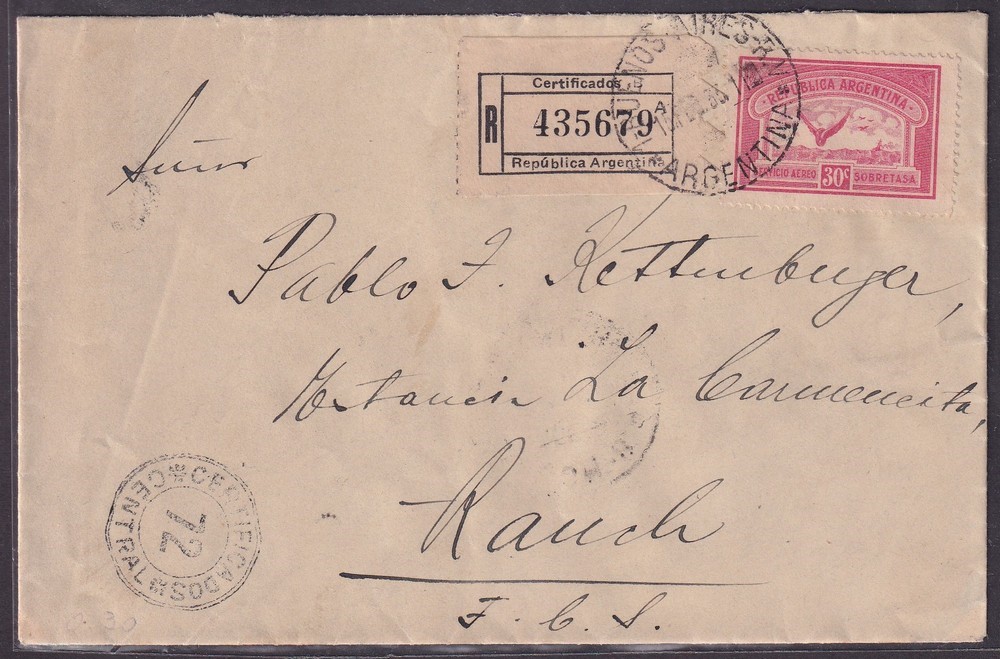 Certificados
R 435679
República Argentina
BUENOS AIRES
ARGENTINA
REPÚBLICA ARGENTINA
SERVICIO AEREO 30c SOBRETASA
Señor
Pablo F. Kettenburger,
Estancia La Carmencita,
Rauch
F. C. S.
CERTIFICADOS
72
CENTRAL